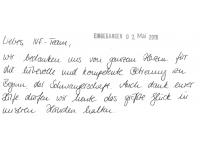 Liebes IVF-Team,
EINGEGANGEN 02. MAI 2019
wir bedanken uns von ganzem Herzen für
die liebevolle und kompetente Betreuung von
Beginn der Schwangerschaft. Auch dank eurer
Hilfe dürfen wir heute das größte Glück in
unseren Händen halten.